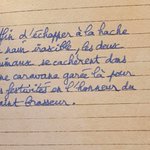 fin d'échapper à la hache
nain irascible, les deux
nimaux se cachèrent dans
ne caravane garée là pour
es festivités et l'honneur du
aint Brasseur.